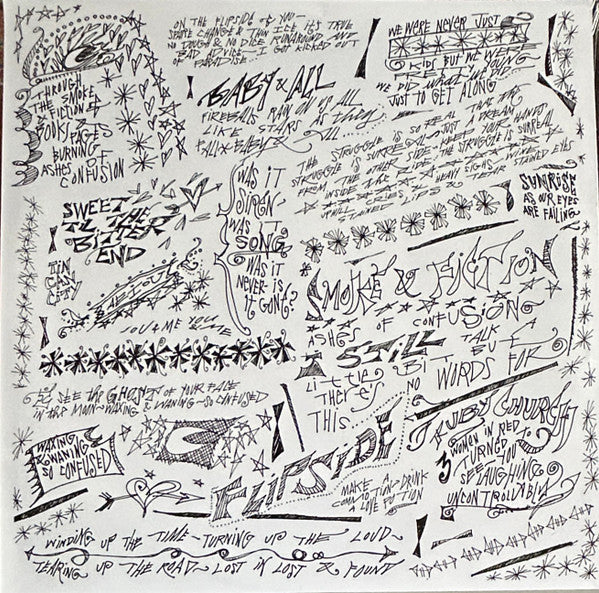 ON THE FLIPSIDE OF YOU—
SPARE CHANGE & THIN ICE IT'S TRUE
NO DOUGH & NO DICE RUNAROUND AND
BAD ADVICE — GOT KICKED OUT
OF PARADISE...
WE WERE NEVER JUST
KIDS BUT WE WERE
PRETTY YOUNG
WE DID WHAT WE DID
JUST TO GET ALONG
THROUGH
THE SMOKE
& FICTION
BOOKS PAGES
BURNING
ASHES OF
CONFUSION
BABY & ALL
FIREBALLS RAIN ON US ALL
LIKE STARS AS THEY
FALL & BABY & ALL
THE STRUGGLE IS SO REAL THAT THE
STRUGGLE IS SURREAL JUST A DREAM
FROM THE OTHER SIDE - KEEP YOUR HANDS
INSIDE THE RIDE - THE STRUGGLE IS SURREAL
UPHILL CRIES & HEAVY SIGHS - WIND
TUNNEL LIPS & TEAR STAINED EYES
SUNRISE
AS OUR EYES
ARE FALLING
SWEET
TIL THE
BITTER
END
WAS IT
SIREN
WAS
SONG
WAS IT
NEVER IS
IT GONE?
TIN
CAN
CITY
BABY & ALL
YOU & ME YOU & ME
SMOKE & FICTION
ASHES OF CONFUSION
STILL
LITTLE BIT TALK BUT
THERE'S NO WORDS FOR
THIS
I SEE THE GHOST OF YOUR FACE
IN THE MOON - WAXING & WANING - SO CONFUSED
WAXING
WANING
SO CONFUSED
FLIPSIDE
MAKE A
COMMOTION - DRINK
A LOVE POTION
RUBY CHURCH
3 WOMEN IN RED
TURNED TO
SEE YOU
LAUGHING
UNCONTROLLABLY
WINDING UP THE TIME - TURNING UP THE LOUD -
TEARING UP THE ROAD - LOST IN LOST & FOUND